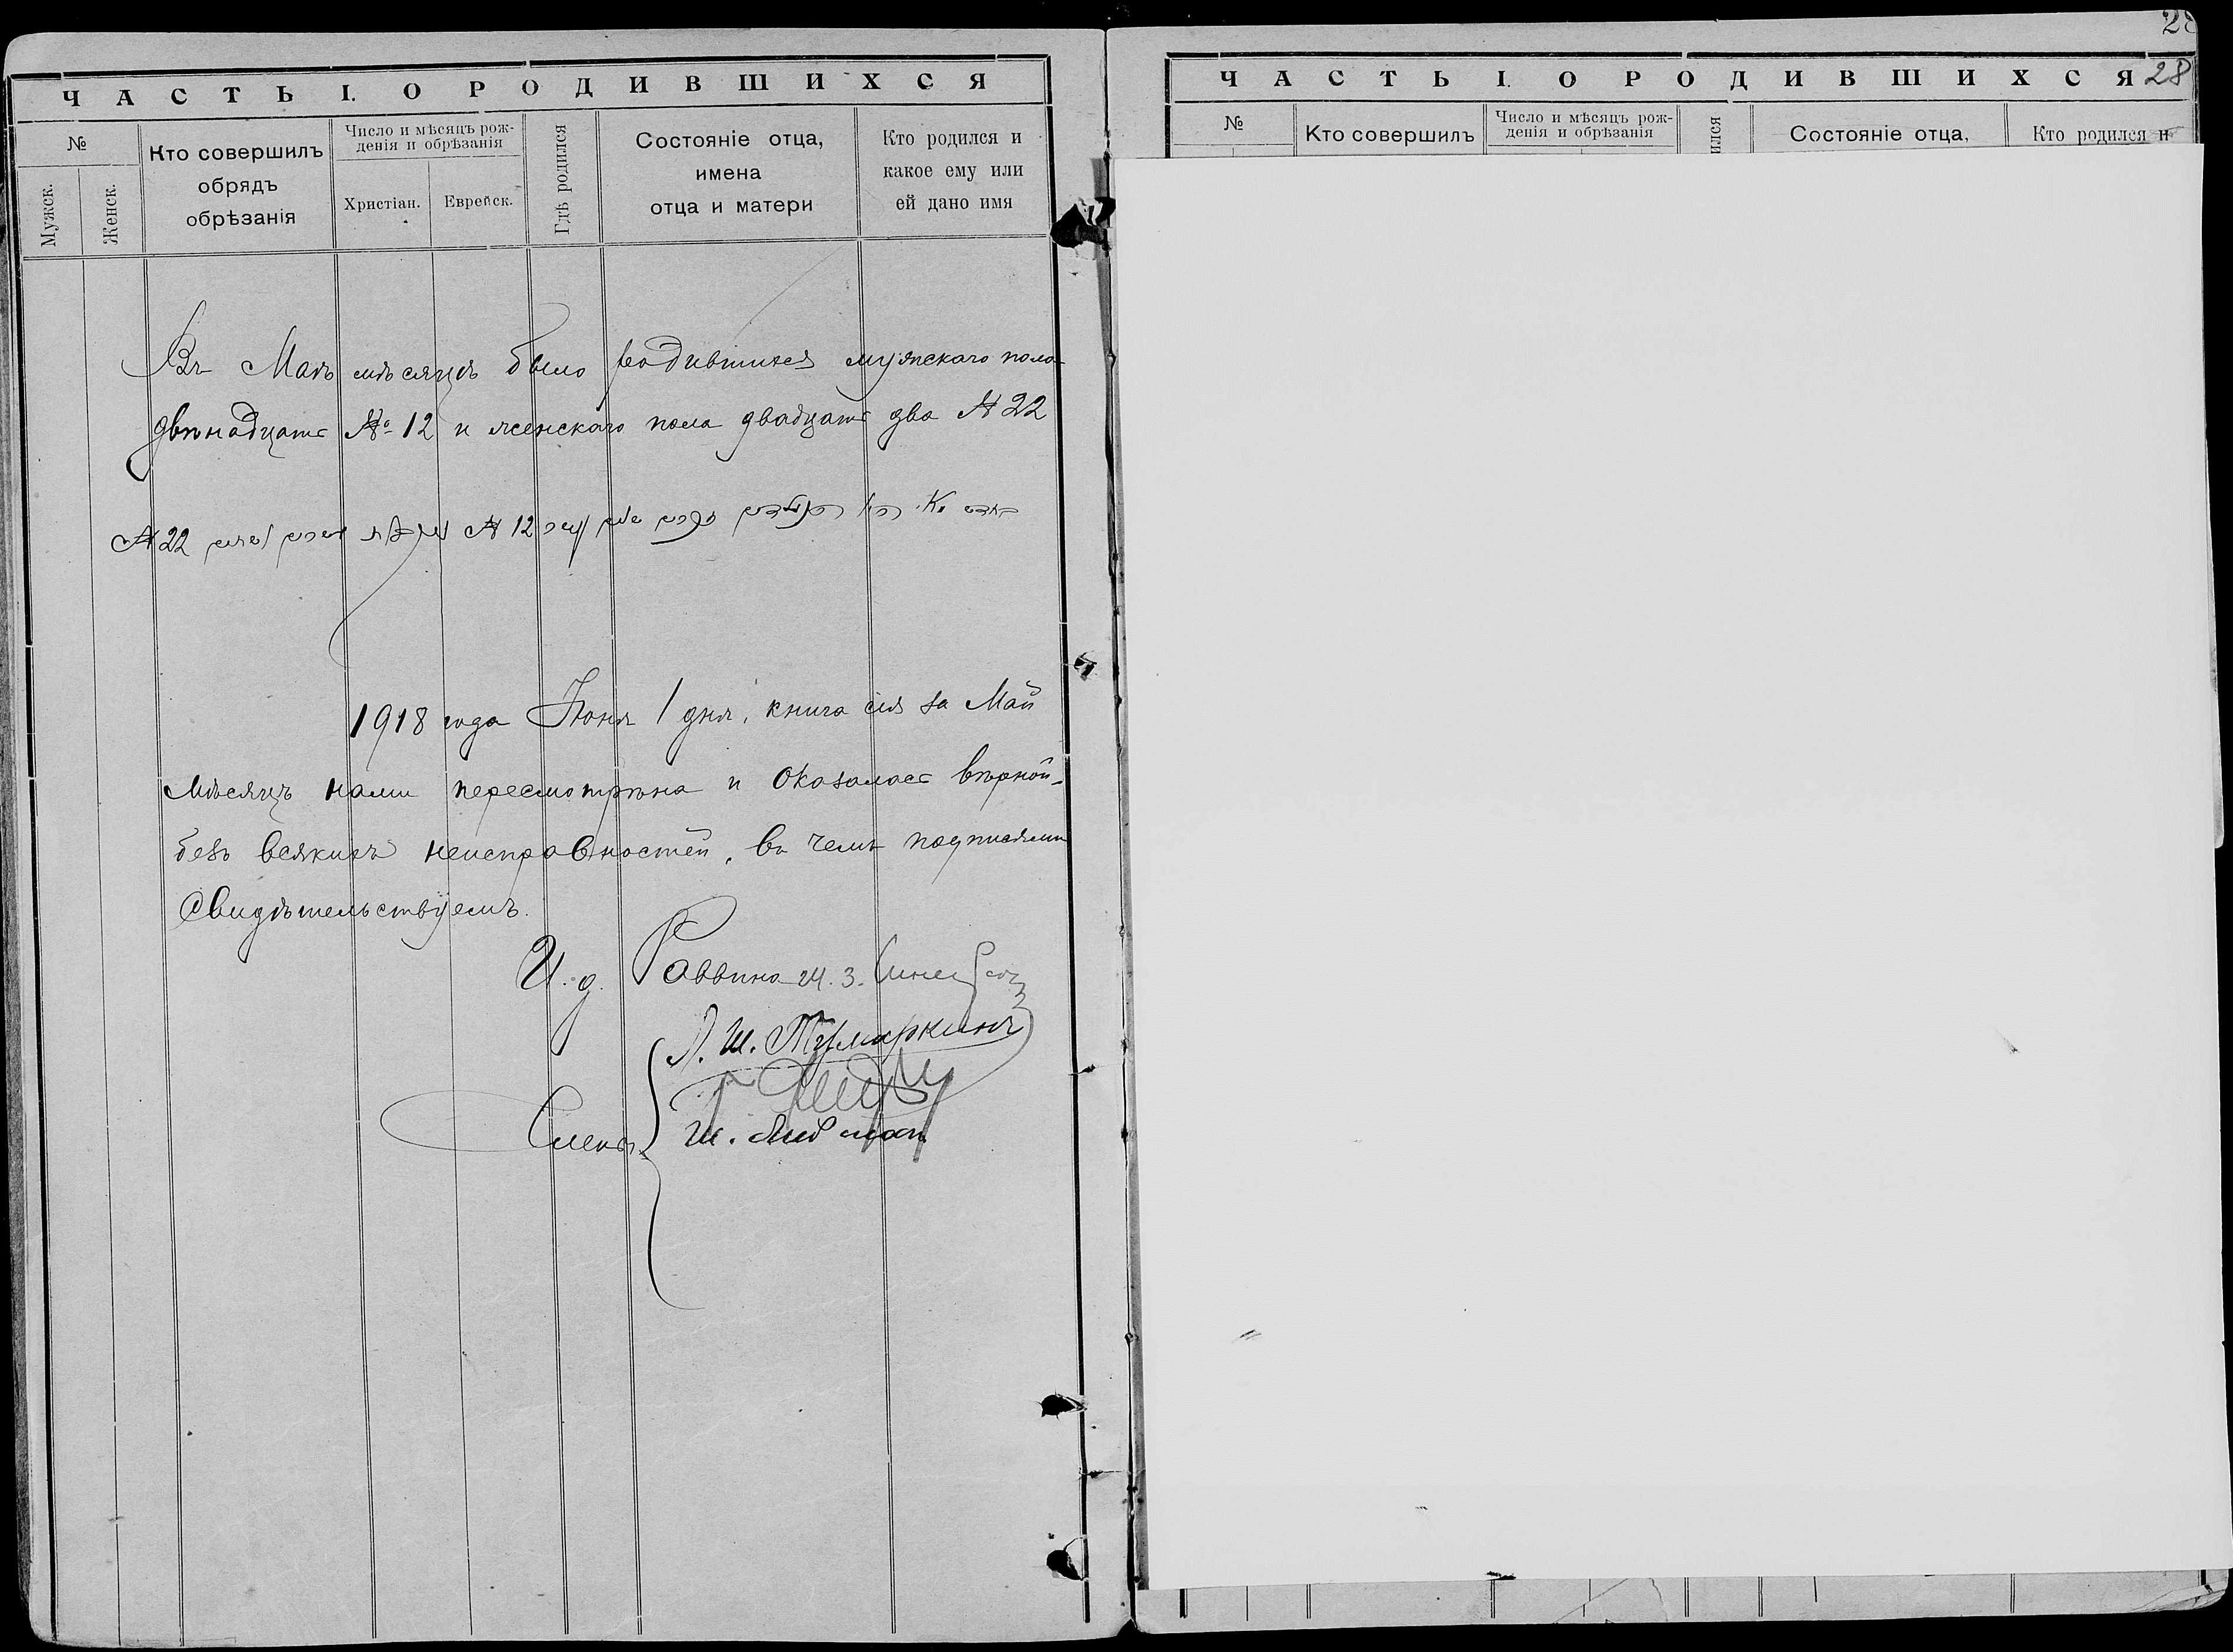 ЧАСТЬ I. О РОДИВШИХСЯ
№
Мужск.
Женск.
Кто совершилъ
обрядъ
обрѣзанія
Число и мѣсяцъ рож-
денія и обрѣзанія
Христіан.
Еврейск.
Гдѣ родился
Состояніе отца,
имена
отца и матери
Кто родился и
какое ему или
ей дано имя
Въ Маѣ мѣсяцѣ было родившихся мужскаго пола
двѣнадцать № 12 и женскаго пола двадцать два № 22
№ 12
№ 22
1918 года Іюня 1 дня, книга сія за Май
мѣсяцъ нами пересмотрѣна и оказалась вѣрной
безъ всякихъ неисправностей, въ чемъ подписями
свидѣтельствуемъ.
И. д. Раввина
Л. Ш. Тумаркинъ
Члены
Ш.
28
ЧАСТЬ I. О РОДИВШИХСЯ 28
№
Кто совершилъ
Число и мѣсяцъ рож-
денія и обрѣзанія
ился
Состояніе отца,
Кто родился и